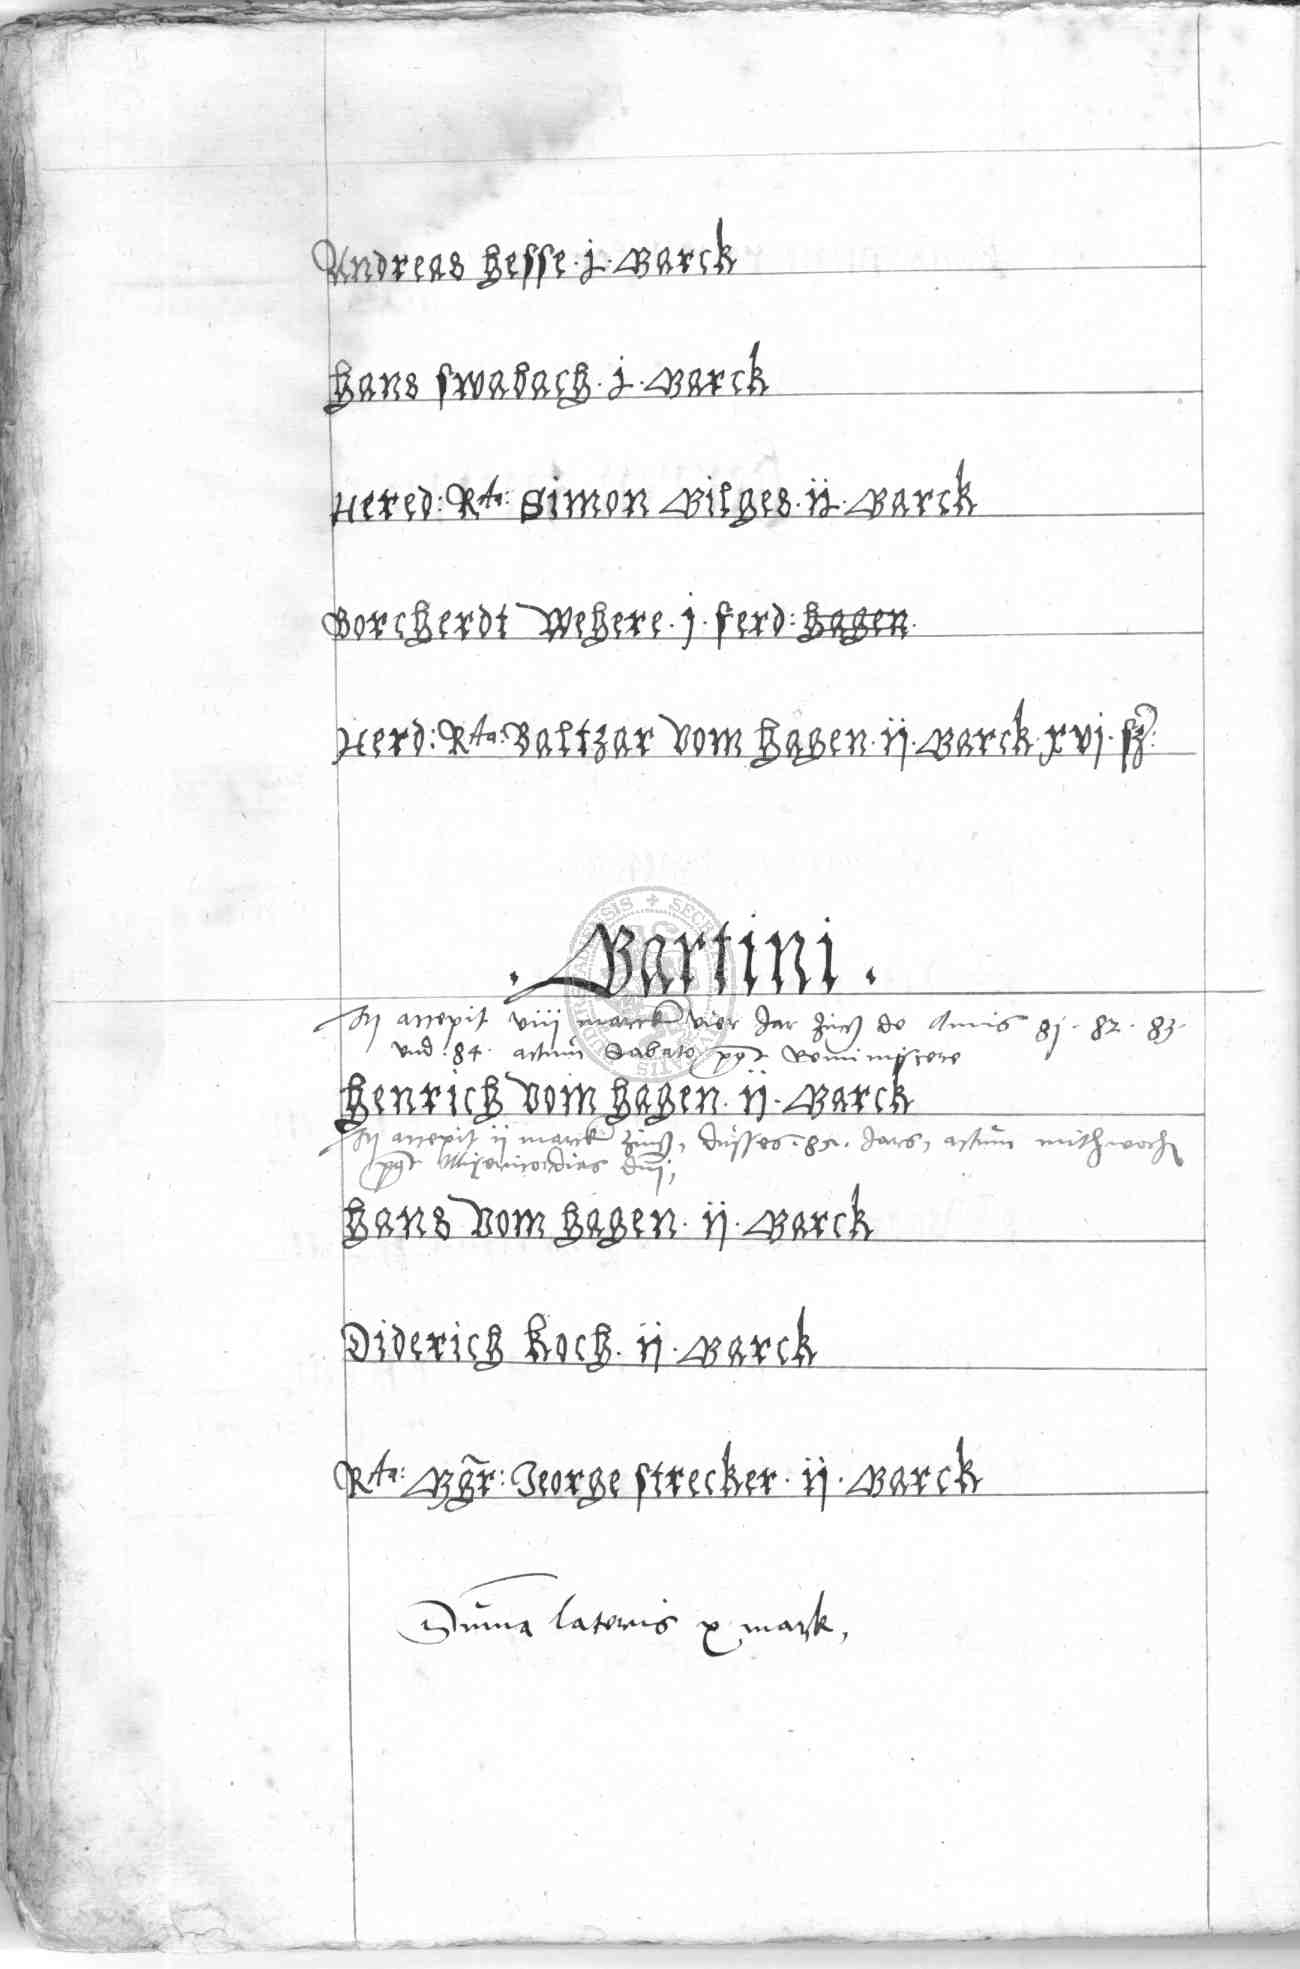 Andreas Hesse · j · Marck
Hans Swabach · j · Marck
Hered: Rta: Simon Gilges · ij · Marck
Borcherdt Wehere · j · ferd: hagen
Herd: Rta: Baltzar vom Hagen · ij · Marck xvj · sz:
· Martini ·
accepit viij marck vier Jar Zinß de Annis 81 · 82 · 83 ·
vnd · 84 · actum Sabato post Reminiscere
Henrich vom Hagen · ij · Marck
accepit ij marck Zinß, dusses · 85 · Jars, actum mithwoch
post Misericordias dni,
Hans vom Hagen · ij · Marck
Diderich Koch · ij · Marck
Rta: Mgr: Jeorge Strecker · ij · Marck
Suma lateris x mark,